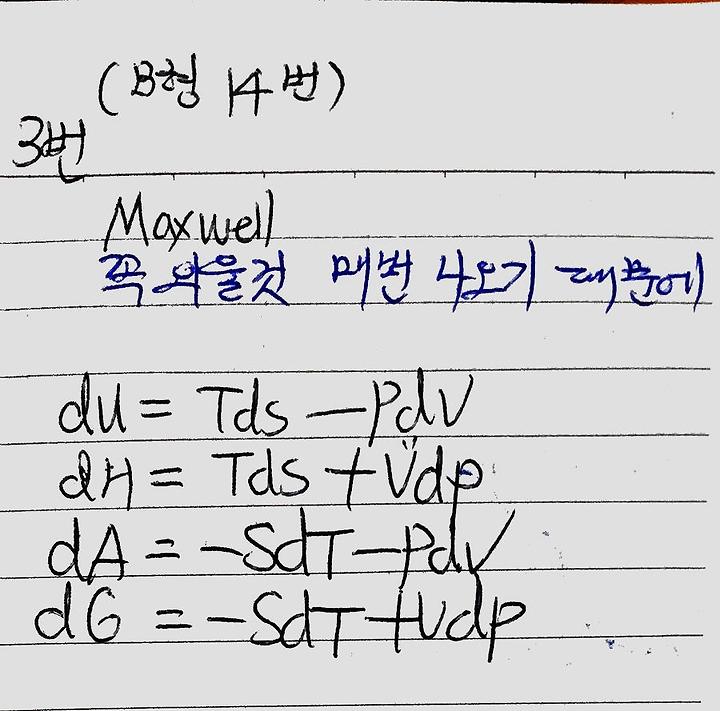 (B형 14번)
3번
Maxwell
꼭 외울것 매번 나오기 때문에
dU = Tds - PdV
dH = Tds + Vdp
dA = -SdT - PdV
dG = -SdT + Vdp